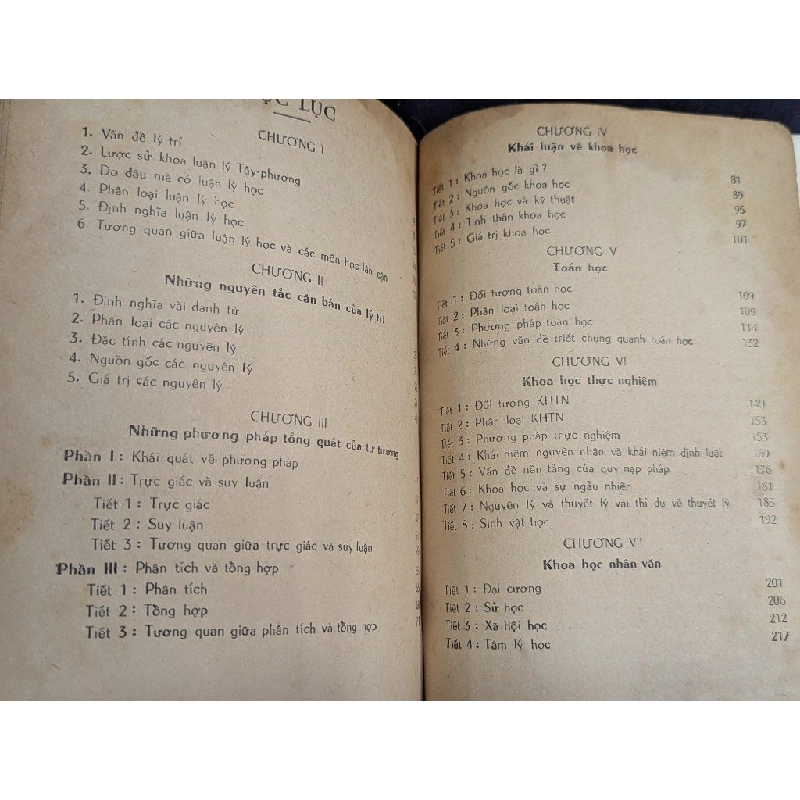 LỤC
CHƯƠNG I
1. Vấn đề lý trí
2. Lược sử khoa luận lý Tây-phương
3. Do đâu mà có luận lý học
4. Phân loại luận lý học
5. Định nghĩa luận lý học
6 Tương quan giữa luận lý học và các môn học lân cận
CHƯƠNG II
Những nguyên tắc căn bản của lý trí
1. Định nghĩa vài danh từ
2. Phân loại các nguyên lý
3. Đặc tính các nguyên lý
4. Nguồn gốc các nguyên lý
5. Giá trị các nguyên lý
CHƯƠNG III
Những phương pháp tổng quát của tư tưởng
Phần I : Khái quát về phương pháp
Phần II : Trực giác và suy luận
Tiết 1 : Trực giác
Tiết 2 : Suy luận
Tiết 3 : Tương quan giữa trực giác và suy luận
Phần III : Phân tích và tổng hợp
Tiết 1 : Phân tích
Tiết 2 : Tổng hợp
Tiết 3 : Tương quan giữa phân tích và tổng hợp
CHƯƠNG IV
Khái luận về khoa học
Tiết 1 : Khoa học là gì ? 81
Tiết 2 : Nguồn gốc khoa học 89
Tiết 3 : Khoa học và kỹ thuật 95
Tiết 4 : Tinh thần khoa học 97
Tiết 5 : Giá trị khoa học 101
CHƯƠNG V
Toán học
Tiết 1 : Đối tượng toán học 109
Tiết 2 : Phân loại toán học 109
Tiết 3 : Phương pháp toán học 114
Tiết 4 : Những vấn đề triết chung quanh toán học 132
CHƯƠNG VI
Khoa học thực nghiệm
Tiết 1 : Đối tượng KHTN
Tiết 2 : Phân loại KHTN 153
Tiết 3 : Phương pháp thực nghiệm 153
Tiết 4 : Khái niệm nguyên nhân và khái niệm định luật
Tiết 5 : Vấn đề nền tảng của quy nạp pháp 176
Tiết 6 : Khoa học và sự ngẫu nhiên 181
Tiết 7 : Nguyên lý và thuyết lý vài thí dụ về thuyết lý 185
Tiết 8 : Sinh vật học 192
CHƯƠNG VII
Khoa học nhân văn
Tiết 1 : Đại cương 201
Tiết 2 : Sử học 206
Tiết 3 : Xã hội học 212
Tiết 4 : Tâm lý học 217